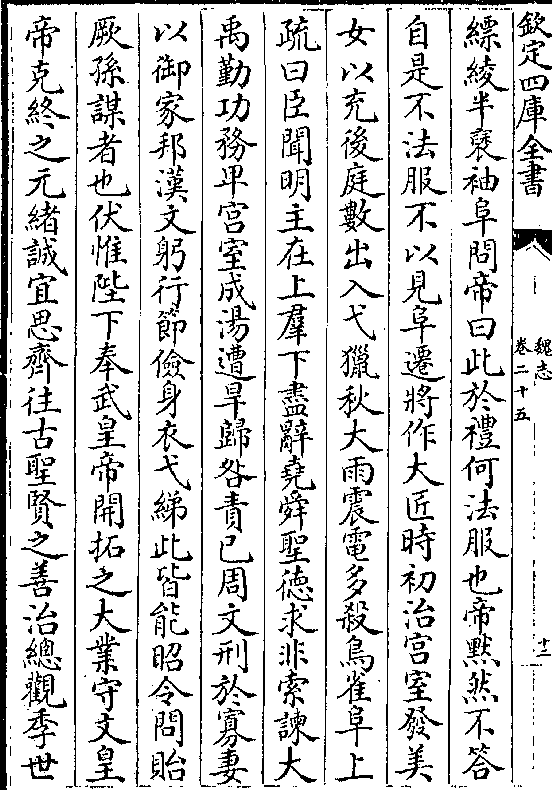 欽定四庫全書
魏志
卷二十五
十二
縹綾半褏袖阜問帝曰此於禮何法服也帝黙然不答
自是不法服不以見阜遷將作大匠時初治宫室發美
女以充後庭數出入弋獵秋大雨震電多殺鳥雀阜上
疏曰臣聞明主在上羣下盡辭堯舜聖徳求非索諫大
禹勤功務卑宫室成湯遭旱歸咎責已周文刑於寡妻
以御家邦漢文躬行節儉身衣弋綈此皆能昭令問貽
厥孫謀者也伏惟陛下奉武皇帝開拓之大業守文皇
帝克終之元緒誠宜思齊往古聖賢之善治總觀季世